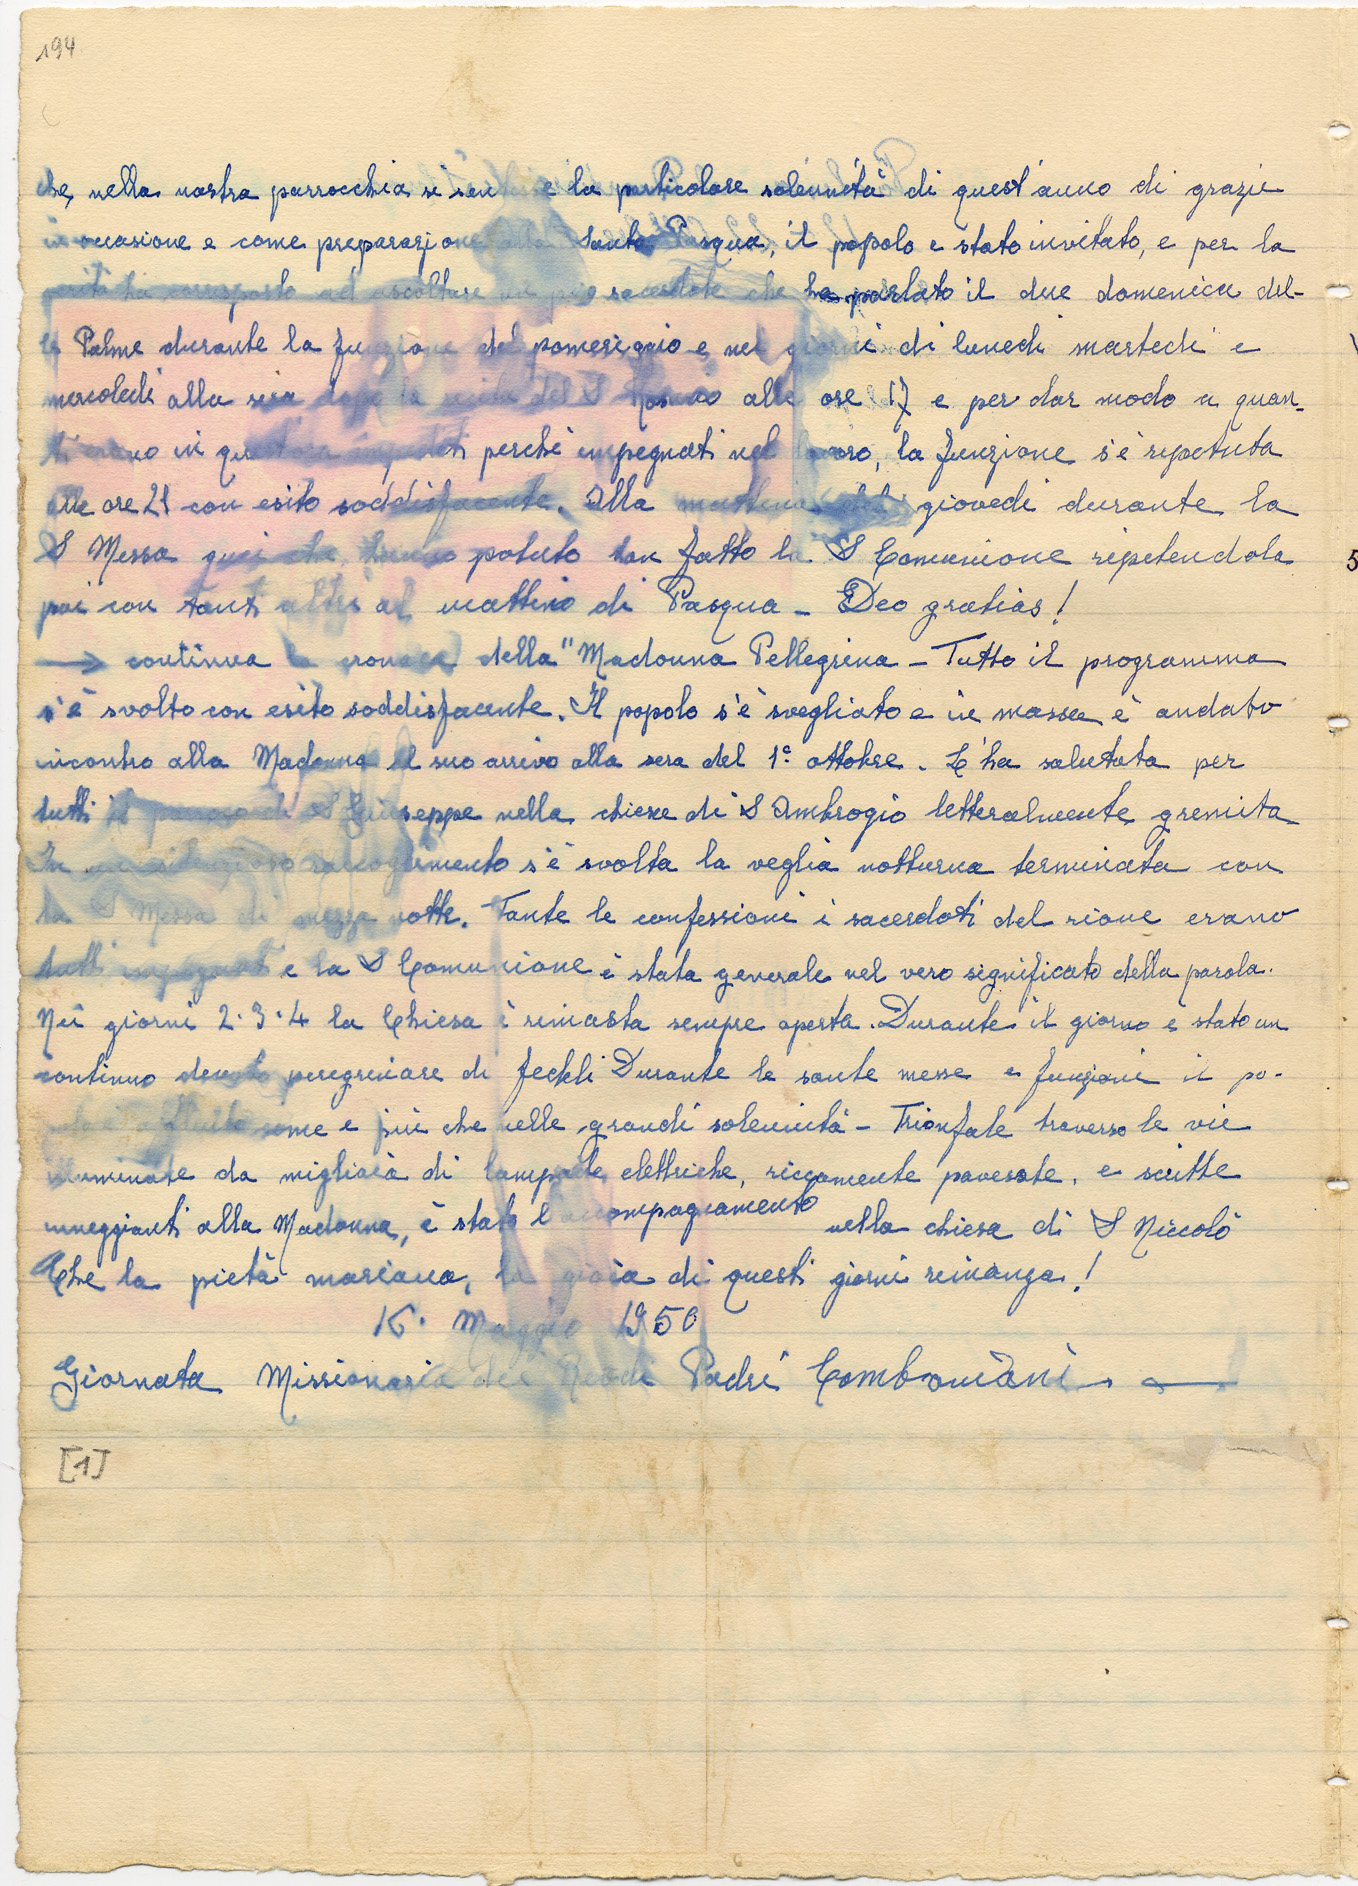 194
che nella nostra parrocchia si sentisse la particolare solennità di quest'anno di grazie
in occasione e come preparazione alla Santa Pasqua, il popolo è stato invitato, e per la
verità ha corrisposto ad ascoltare un pio sacerdote che ha parlato il due domenica del-
le Palme durante la funzione del pomeriggio e nei giorni di lunedì martedì e
mercoledì alla sera dopo la recita del S Rosario alle ore 17 e per dar modo a quan-
ti erano in quest'ora impediti perché impegnati nel lavoro, la funzione s'è ripetuta
alle ore 21 con esito soddisfacente. Alla mattina del giovedì durante la
S Messa quei che hanno potuto han fatto la S Comunione ripetendola
poi con tanti altri al mattino di Pasqua - Deo gratias!
→ continua la cronaca della "Madonna Pellegrina - Tutto il programma
s'è svolto con esito soddisfacente. Il popolo s'è svegliato e in massa è andato
incontro alla Madonna al suo arrivo alla sera del 1° ottobre. L'ha salutata per
tutti il parroco di S Giuseppe nella chiesa di S Ambrogio letteralmente gremita
In un silenzioso raccoglimento s'è svolta la veglia notturna terminata con
la S Messa di mezza notte. Tante le confessioni i sacerdoti del rione erano
tutti impegnati e la S Comunione è stata generale nel vero significato della parola.
Nei giorni 2.3.4 la Chiesa è rimasta sempre aperta. Durante il giorno è stato un
continuo devoto peregrinare di fedeli Durante le sante messe e funzioni il po-
polo è affluito come e più che nelle grandi solennità - Trionfale traverso le vie
illuminate da migliaia di lampade elettriche, riccamente pavesate, e scritte
inneggianti alla Madonna, è stato l'accompagnamento nella chiesa di S Niccolò
Che la pietà mariana, la gioia di questi giorni rimanga!
16. Maggio 1950
Giornata Missionaria dei Rev.di Padri Comboniani
[1]
5